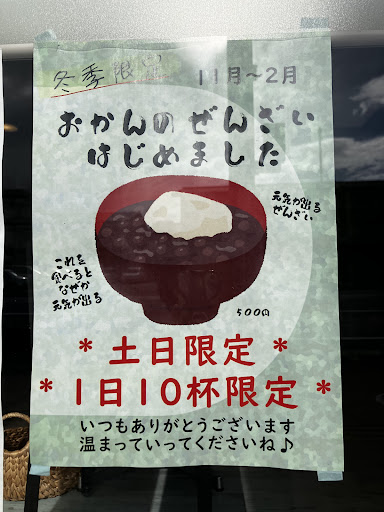 冬季限定
11月～2月
おかんのぜんざい
はじめました
元気が出る
ぜんざい
これを
食べると
なぜか
元気が出る
500円
* 土日限定 *
* 1日10杯限定 *
いつもありがとうございます
温まっていってくださいね♪